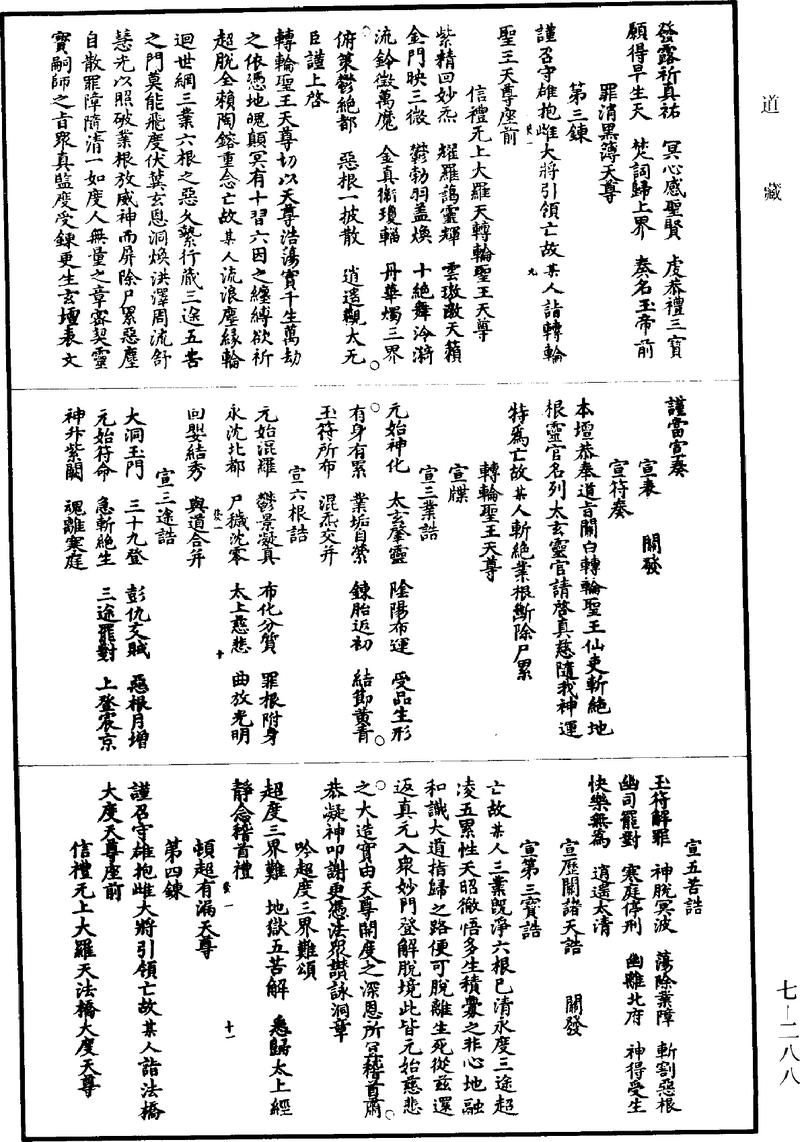 道藏
發露祈真祐　冥心感聖賢　虔恭禮三寶
願得早生天　焚詞歸上界　奏名玉帝前
罪消黑簿天尊
第三鍊
謹召守雄抱雌大將引領亡故某人詣轉輪
聖王天尊座前
信禮无上大羅天轉輪聖王天尊
紫精回妙炁　耀羅鬱靈輝　雲璈激天籟
金門映三微　鬱勃羽蓋煥　十絕舞泠漪
流鈴徵萬魔　金真衛瓊輜　丹華燭三界
俯策鬱絕都　惡根一披散　逍遙觀太无
臣謹上啓
轉輪聖王天尊切以天尊浩蕩實千生萬劫
之依憑地魄顛冥有十習六因之纏縛欲祈
超脫全賴陶鎔重念亡故某人流浪塵緣輪
迴世網三業六根之惡久縶行藏三途五苦
之門莫能飛度伏冀玄恩洞煥洪澤周流舒
慧光以照破業根放威神而屏除尸累惡塵
自散罪障隨清一如度人無量之章密契靈
寶嗣師之旨眾真監度受鍊更生玄壇表文
謹當宣奏
宣表　關發
宣符奏
本壇恭奉道旨關白轉輪聖王仙吏斬絕地
根靈官名列太玄靈官請啓真慈隨我神運
特為亡故某人斬絕業根斷除尸累
轉輪聖王天尊
宣牒
宣三業誥
元始神化　太玄肇靈　陰陽布運　受品生形
有身有累　業垢自縈　鍊胎返初　結節黃青
玉符所布　混炁交并
宣六根誥
元始混羅　鬱景凝真　布化分質　罪根附身
永沈北都　尸穢沈零　太上慈悲　曲放光明
回嬰結秀　與道合并
宣三途誥
大洞玉門　三十九登　彭仇交賊　惡根月增
元始符命　急斬絕生　三途罷對　上登宸京
神升紫闕　魂離寒庭
宣五苦誥
玉符解罪　神脫冥波　蕩除業障　斬割惡根
幽司罷對　寒庭停刑　幽離北府　神得受生
快樂無為　逍遙太清
宣歷關諸天誥　關發
宣第三寶誥
亡故某人三業既淨六根已清永度三途超
凌五累性天昭徹悟多生積釁之非心地融
和識大道指歸之路便可脫離生死從茲還
返真元入眾妙門登解脫境此皆元始慈悲
之大造實由天尊開度之深恩所宜稽首肅
恭凝神叩謝更憑法眾讚詠洞章
吟超度三界難頌
超度三界難　地獄五苦解　悉歸太上經
靜念稽首禮
頓超有漏天尊
第四鍊
謹召守雄抱雌大將引領亡故某人詣法橋
大度天尊座前
信禮无上大羅天法橋大度天尊
七—二八八